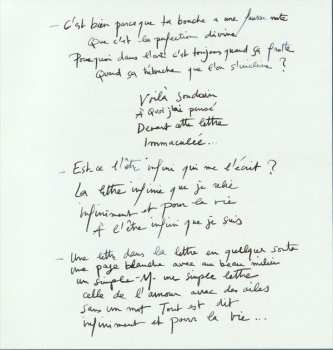 - C'est bien parce que ta bouche a une fausse note
Que c'est la perfection divine
Pourquoi dans l'art c'est toujours quand ça frotte
Quand ça que l'on s'incline ?
Voilà soudain
À quoi j'ai pensé
Devant cette lettre
Immaculée...
- Est-ce l'être infini qui me l'écrit ?
La lettre infinie que je relie
infiniment et pour la vie
À l'être infini que je suis
- Une lettre dans la lettre en quelque sorte
une page blanche avec au beau milieu
un simple -M- une simple lettre
celle de l'amour avec des ailes
sans un mot Tout est dit
infiniment et pour la vie...